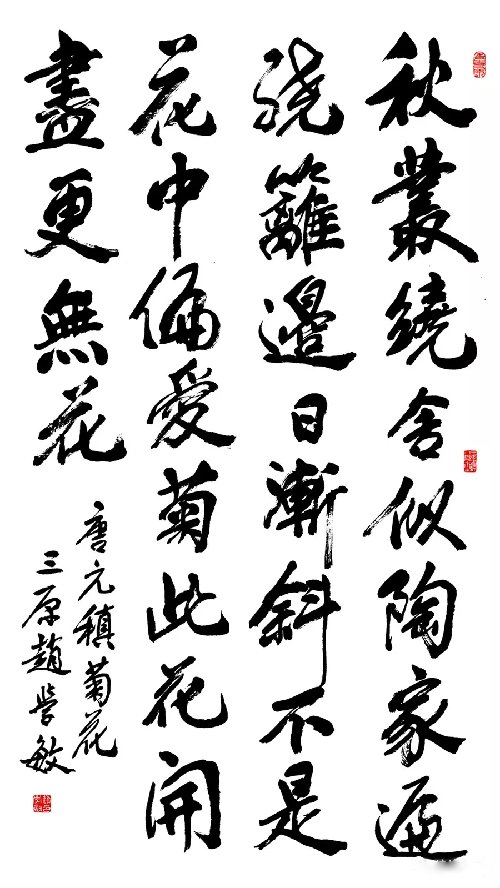 秋叢繞舍似陶家遍
繞籬邊日漸斜不是
花中偏愛菊此花開
盡更無花
唐元稹菊花
三原趙學敏